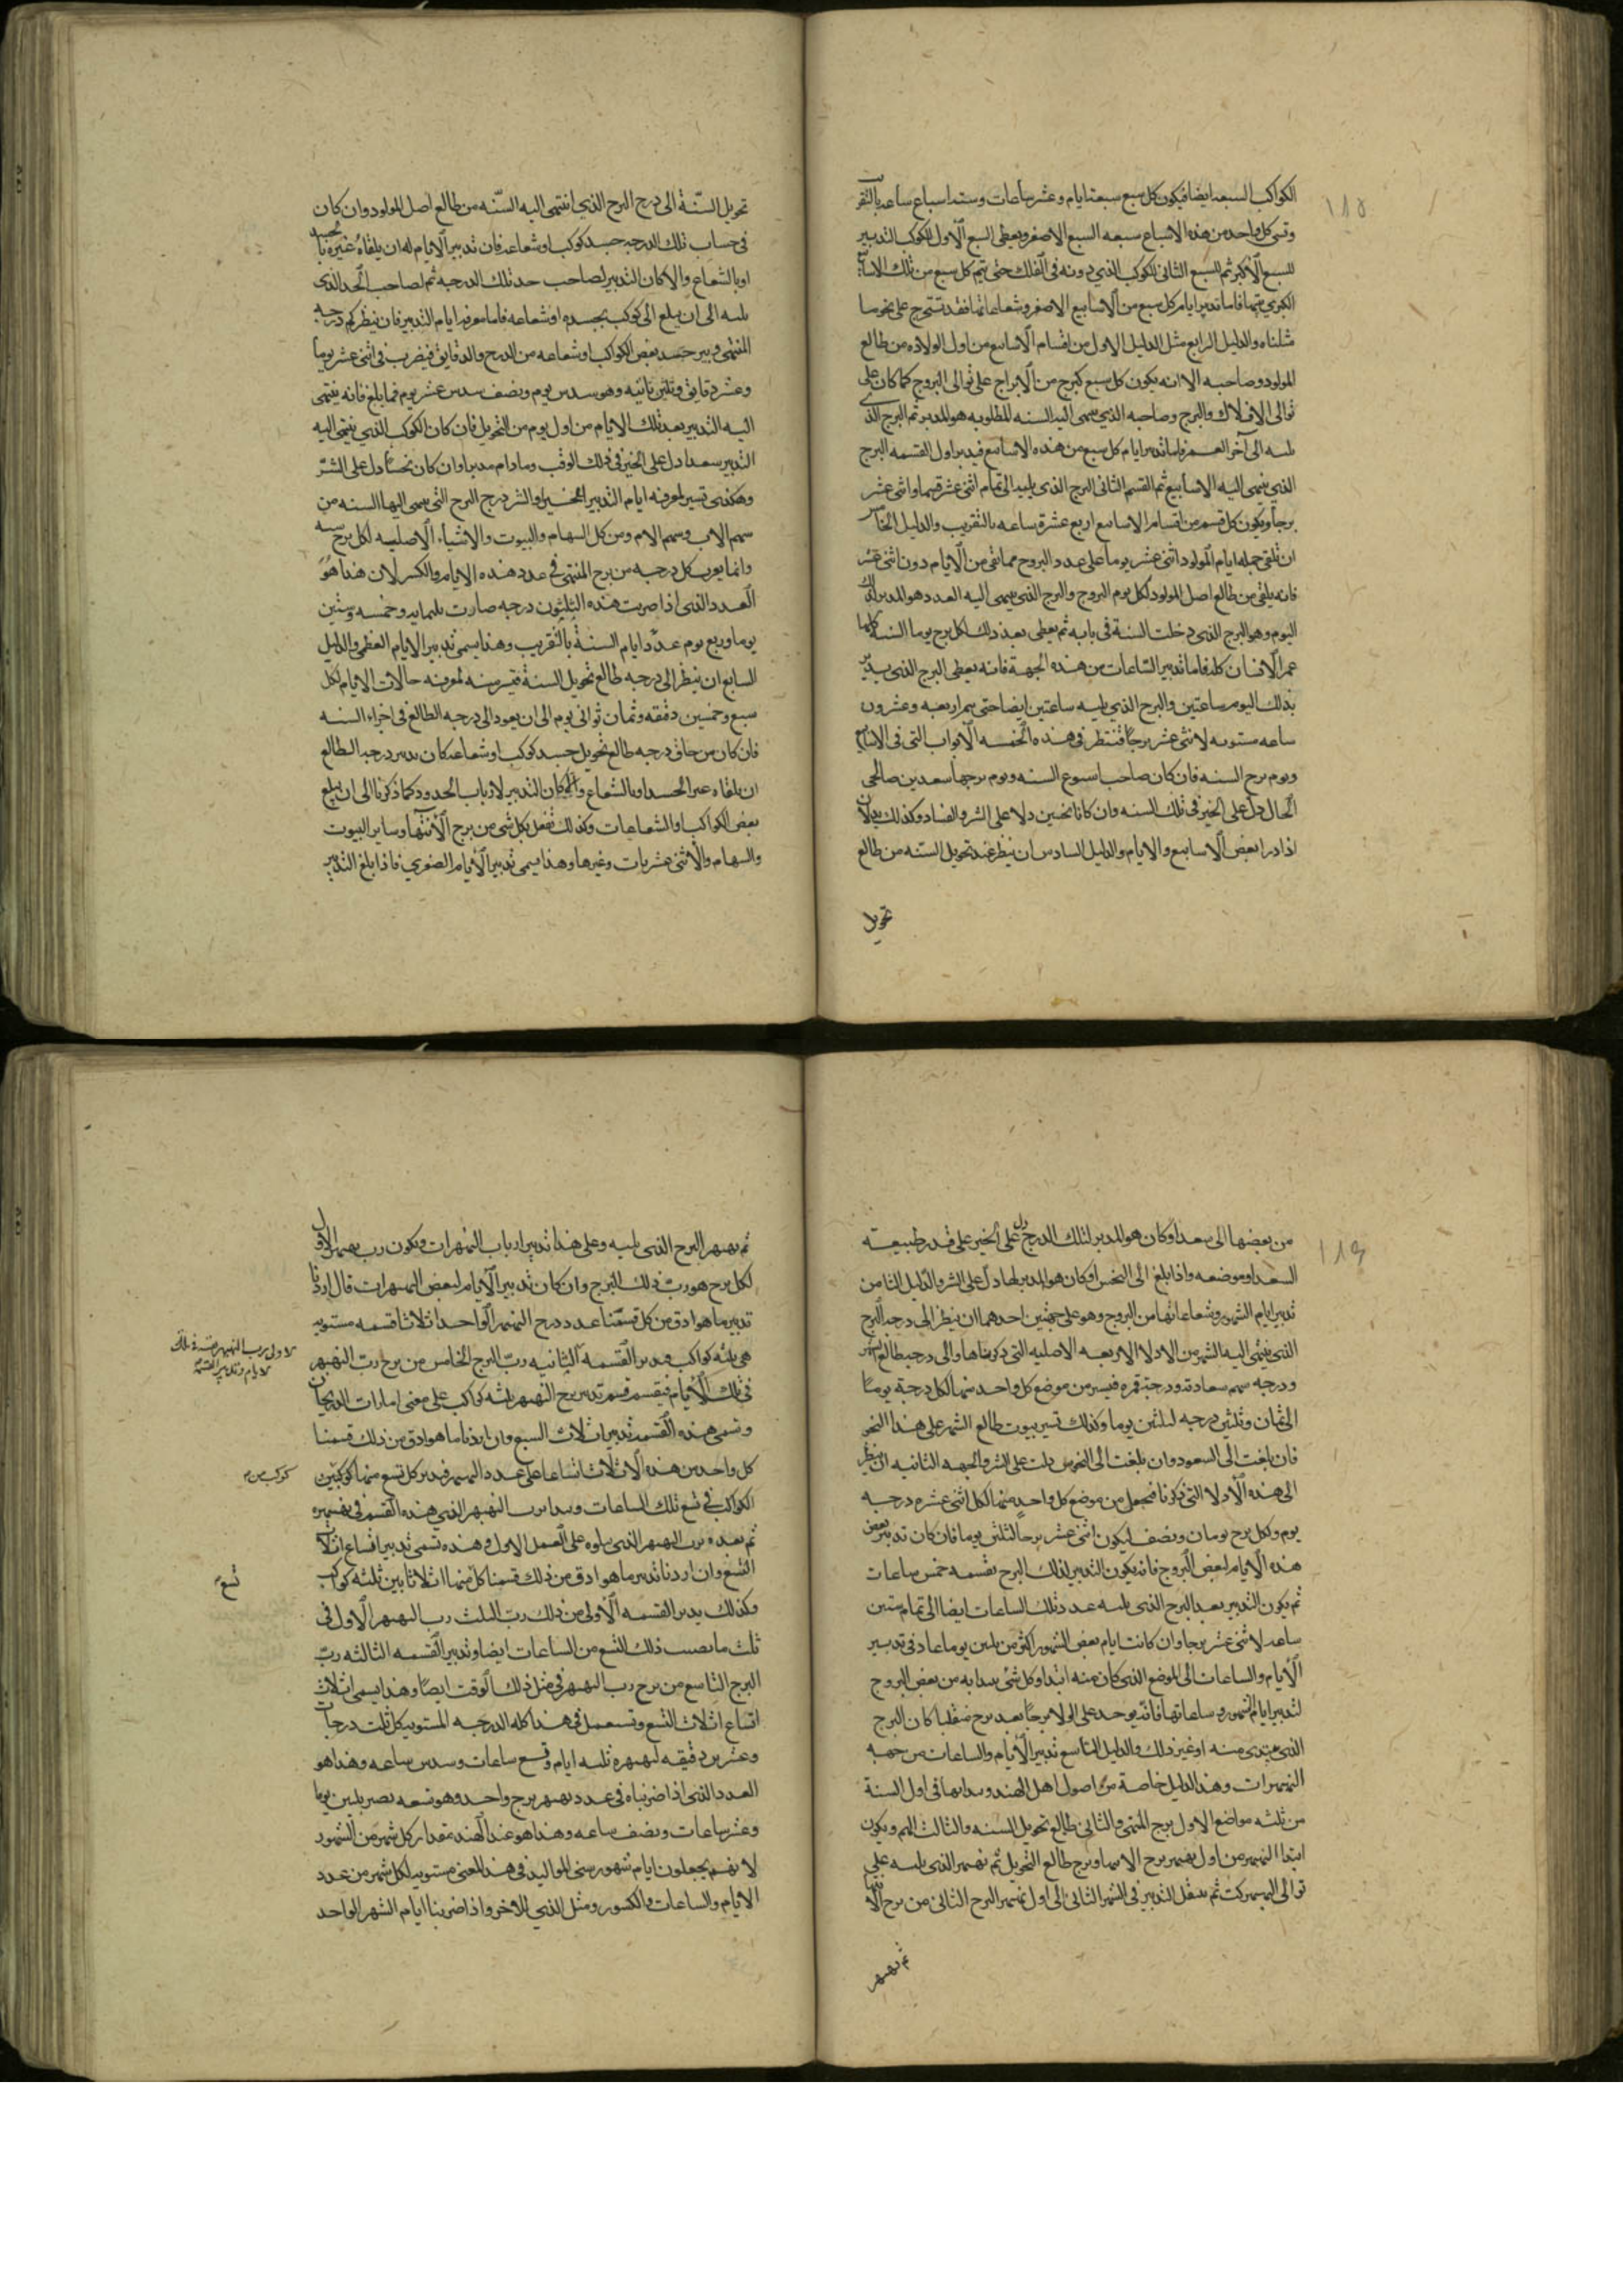 الكواكب السبعه ايضا فيكون كل سبع سبعة ايام وعشر ساعات وستة اسباع ساعه بالتقريب
وتسمى كل واحد من هذه الاسباع سبعه السبع الاصغر ويعطى السبع الاول للكوكب التدبير
للسبع الاكبر ثم السبع الثانى للكوكب الذي دونه فى الفلك حتى يتم كل سبع من تلك الاسابيع
الكبرى فاما تدبير ايام كل سبع من الاسابيع الاصغر وساعاتها فقد تستخرج على نحو ما
مثلناه والدليل الرابع مثل الدليل الاول من اقسام الاسابيع من اول الولاده من طالع
المولود وصاحبه الا انه يكون كل سبع لبرج من الابراج على توالى البروج كما كان على
توالى الافلاك والبرج وصاحبه الذي ينتهى اليه السنه المطلوبه هو المدبر ثم البرج الذى
يليه الى آخر العمر فاما تدبير ايام كل سبع من هذه الاسابيع فيدبر اول القسمه البرج
الذي ينتهى اليه الاسابيع ثم القسم الثانى البرج الذى يليه الى تمام اثنى عشر قسما واثنى عشر
برجا ويكون كل قسم من اقسام الاسابيع اربع عشرة ساعه بالتقريب والدليل الخامس
ان تلقى جمله ايام المولود اثنى عشر يوما على عدد البروج فما بقى من الايام دون اثنى عشر
فانه يلقى من طالع اصل المولود لكل يوم البروج والبرج الذى ينتهى اليه العدد هو المدبر لذلك
اليوم وهو البرج الذى دخلت السنة فى بابه ثم يعطى بعد ذلك لكل برج يوما السنة كلها
عمر الانسان كله فاما تدبير الساعات من هذه الجهة فانه يعطى البرج الذى يدبر
بذلك اليوم ساعتين والبرج الذى يليه ساعتين ايضا حتى يتم اربعه وعشرون
ساعه مستويه لاثنى عشر برجا فتنظر فى هذه الخمسه الابواب التى فى الاسابيع
ويوم برج السنه فان كان صاحب اسبوع السنه ويوم برجها سعدين صالحى
الحال دل على الخير فى تلك السنه وان كانا نحسين دلا على الشر والفساد وكذلك يدلان
اذا دبرا بعض الاسابيع والايام والدليل السادس ان ينظر عند تحويل السنه من طالع
تحويل
تحويل السنة الى درج البرج الذي انتهى اليه السنه من طالع اصل المولود وان كان
فى حساب تلك الدرجه جسد كوكب او شعاعه فان تدبير الايام له ان يلقاه غيره بالجسد
او بالشعاع والا كان التدبير لصاحب حد تلك الدرجه ثم لصاحب الحد الذى
يليه الى ان يبلغ الى كوكب بجسده او شعاعه فاما معرفه ايام التدبير فان ينظر كم درجه
المنتهى وبين جسد بعض الكواكب او شعاعه من الدرج والدقايق فيضرب فى اثنى عشر يوما
وعشر دقايق وثلثين ثانيه وهو سدس يوم ونصف سدس عشر يوم فما بلغ فانه ينتهى
اليه التدبير بعد تلك الايام من اول يوم من التحويل فان كان الكوكب الذى ينتهى اليه
التدبير سعدا دل على الخير فى ذلك الوقت وما دام مدبرا وان كان نحسا دل على الشر
وهكذى تسير لمعرفه ايام التدبير الخير والشر درج البرج التى ينتهى اليها السنه من
سهم الاب وسهم الام ومن كل السهام والبيوت والاشياء الاصليه لكل برج سنه
وانما يضرب كل درجه من برج المنتهى فى عدد هذه الايام والكسر لان هذا هو
العدد الذى اذا ضربت هذه الثلثون درجه صارت ثلثمايه وخمسه وستين
يوما وربع يوم عدد ايام السنة بالتقريب وهذا يسمى تدبير الايام العظمى والدليل
السابع ان ينظر الى درجه طالع تحويل السنة فتسير منه لمعرفه حالات الايام لكل
سبع وخمسين دقيقه وثمان ثوانى يوم الى ان يعود الى درجه الطالع فى اجزاء السنه
فان كان من حاق درجه طالع تحويل جسد كوكب او شعاعه كان يدبر درجه الطالع
ان يلقاه غير الجسد او بالشعاع والا كان التدبير لارباب الحدود كما ذكرنا الى ان يبلغ
بعض الكواكب او الشعاعات وكذلك تفعل بكل شى من برج الانتها وساير البيوت
والسهام والاثنى عشريات وغيرها وهذا يسمى تدبير الايام الصغرى فاذا بلغ التدبير
من بعضها الى سعد وكان هو المدبر لتلك الدرج دل على الخير على قدر طبيعة
السعد وموضعه واذا بلغ الى النحس او كان هو المدبر لها دل على الشر والدليل الثامن
تدبير ايام الشهور وشعاعاتها من البروج وهو على جهتين احدهما ان ينظر الى درجه البرج
الذى ينتهى اليه الشهر من الادلا الاربعه الاصليه التى ذكرناها والى درجه طالع الشهر
ودرجه سهم سعادته ودرجة قمره فيسير من موضع كل واحد منها لكل درجة يوما
الى ثمان وثلثين درجه لثلثين يوما وكذلك تسير بيوت طالع الشهر على هذا النحو
فان بلغت الى السعود وان بلغت الى النحوس دلت على الشر والجهه الثانيه ان ينظر
الى هذه الادلا التى ذكرنا فيجعل من موضع كل واحد منها لكل اثنى عشره درجه
يوم ولكل برج يومان ونصف ليكون اثنى عشر برجا لثلثين يوما فان كان تدبير بعض
هذه الايام لبعض البروج فانه يكون التدبير لذلك البرج بقسمه خمس ساعات
ثم يكون التدبير بعد البرج الذى يليه عدد تلك الساعات ايضا الى تمام ستين
ساعه لاثنى عشر برجا وان كانت ايام بعض الشهور اكثر من ثلثين يوما عاد فى تدبير
الايام والساعات الى الموضع الذى كان منه ابتدا وكل شى يبدا به من بعض البروج
لتدبير ايام الشهور وساعاتها فانه يوخذ على الولا برجا بعد برج منقلبا كان البرج
الذى يبتدى منه او غير ذلك والدليل التاسع تدبير الايام والساعات من جهه
النهبهرات وهذا الدليل خاصة من اصول اهل الهند ويبدا بها فى اول السنة
من ثلثه مواضع الاول برج المنتهى والثانى طالع تحويل السنه والثالث المم ويكون
ابتدا النهبهر من اول نهبهر برج الانتها وبرج طالع التحويل ثم نهبهر الذى يليه على
توالى النهبهركت ثم ينتقل التدبير فى الشهر الثانى الى اول نهبهر البرج الثانى من برج الانتها
ثم نهبهر
ثم نهبهر البرج الذى يليه وعلى هذا تدبير ارباب النهبهرات ويكون رب نهبهر الاول
لكل برج هو رب ذلك البرج وان كان تدبير الايام لبعض النهبهرات قال اردنا
تدبير ما هو ادق من كل قسمنا عدد درج النهبهر الواحد اثلاثا قسمه مستويه
هى ثلثه كواكب ويدبر القسمه الثانيه رب البرج الخامس من برج رب النهبهر
فى تلك الايام فيقسم قسم تدبير برج النهبهر ثلثه كواكب على معنى امارات الدريجان
وتسمى هذه القسمه تدبير اثلاث السبع وان اردنا ما هو ادق من ذلك قسمنا
كل واحد من هذه الاثلاث اتساعا على عدد النهبهر فيدبر كل تسع منها كوكبين
الكواكب فى تسع تلك الساعات ويبدا برب النهبهر الذى هذه القسم فى نهبهره
ثم بعده برب النهبهر الذى يتلوه على العمل الاول وهذه تسمى تدبير اتساع اثلاث
التسع وان اردنا تدبير ما هو ادق من ذلك قسمنا كل منها اثلاثا بين ثلثه كواكب
وكذلك يدبر القسمه الاولى من ذلك رب الثلث رب النهبهر الاول فى
ثلث ما يصيب ذلك التسع من الساعات ايضا وتدبير القسمه الثالثه رب
البرج التاسع من برج رب النهبهر فى مثل ذلك الوقت ايضا وهذا يسمى اثلاث
اتساع اثلاث التسع وتستعمل فى هذا كله الدرجه المستويه كل ثلث درجات
وعشرين دقيقه لنهبهره ثلثه ايام وتسع ساعات وسدس ساعه وهذا هو
العدد الذى اذا ضربناه فى عدد نهبهر برج واحد وهو تسعه يصير ثلثين يوما
وعشر ساعات ونصف ساعه وهذا هو عند الهند مقدار كل شهر من الشهور
لانهم يجعلون ايام شهور سنى المواليد فى هذا المعنى مستويه لكل شهر من عدد
الايام والساعات والكسور ومثل الذى للاخر واذا ضربنا ايام الشهر الواحد
تسع